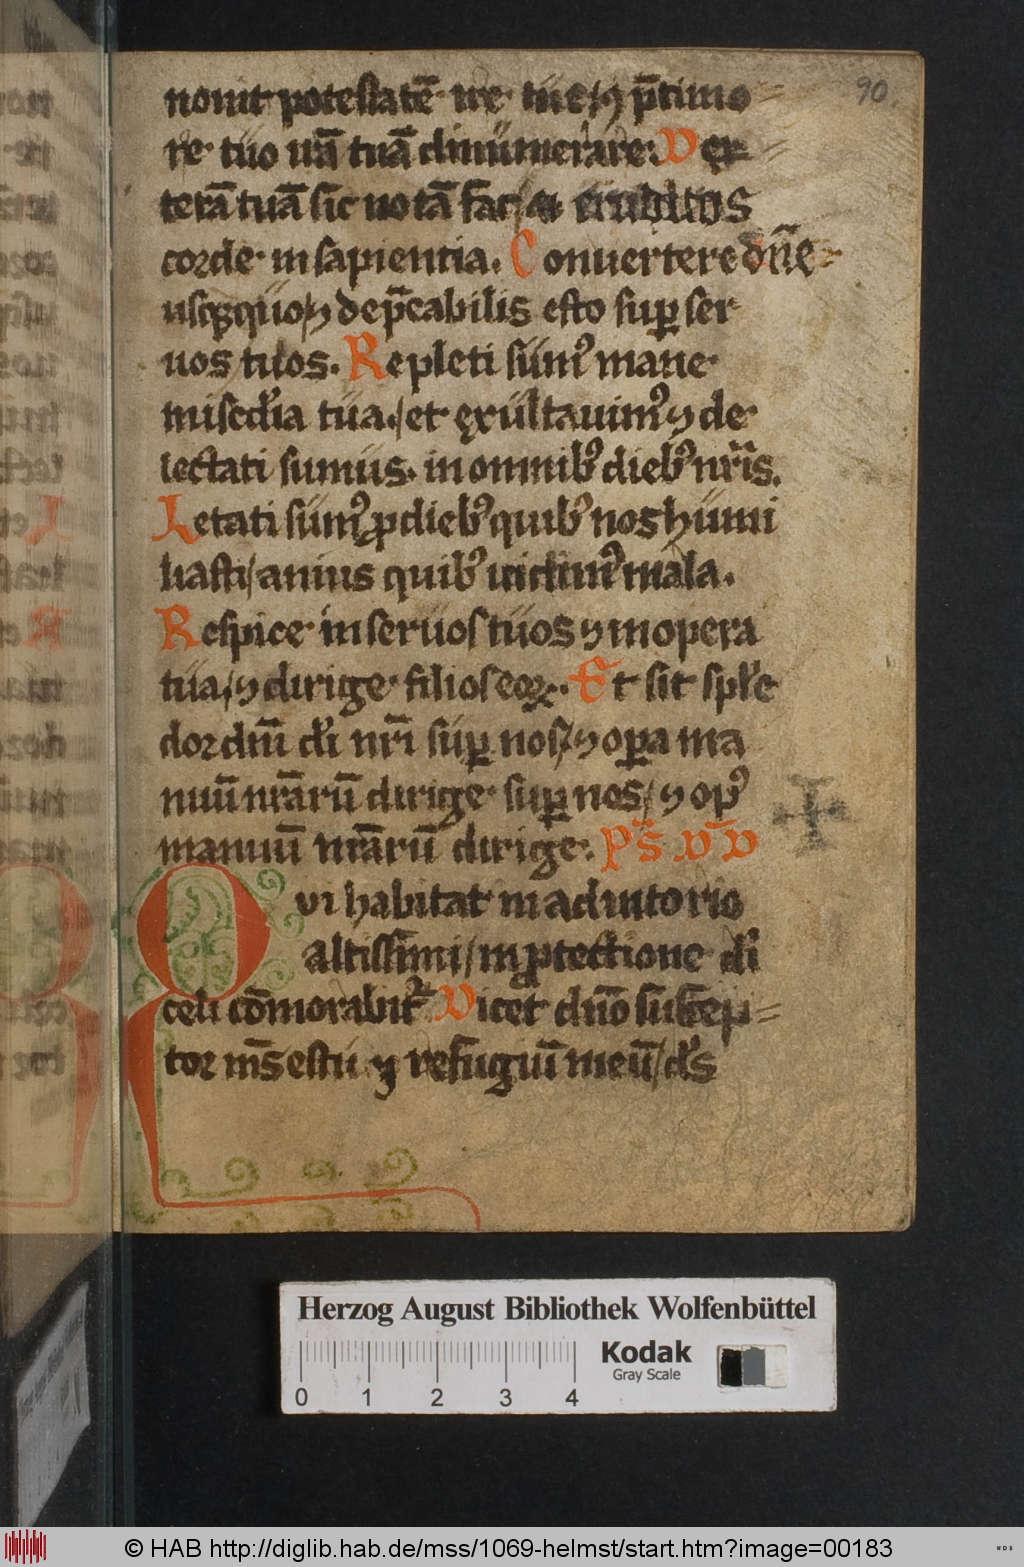 90.
nouit potestatē ire tue/ ⁊ p̄ timo
re tuo irā tuā dinumerare. Dex
terā tuā sic notā fac/ & eruditos
corde in sapientia. Conuertere dn̄e
usq̨quo/ ⁊ dep̄cabilis esto suꝑ ser
uos tuos. Repleti sumꝰ mane
misc̄dia tua./ et exultauimꝰ ⁊ de
lectati sumus. in omnibꝰ diebꝰ nr̄is.
Letati sumꝰ ꝓ diebꝰ quibꝰ nos humi
liasti/ annis quibꝰ uidimꝰ mala.
Respice in seruos tuos ⁊ in opera
tua/ ⁊ dirige filios eoꝝ. Et sit sple
dor dn̄i di nr̄i suꝑ nos/ ⁊ oꝑa ma
nuū nr̄arū dirige suꝑ nos/ ⁊ opꝰ
manuū nr̄arū dirige. Ps̄ DD
Qui habitat in adiutorio
altissimi/ in ꝓtectione di
celi cōmorabit᷑ Dicet dn̄o suscep
tor ms̄ es tu ⁊ refugiū meū/ ds̄
Herzog August Bibliothek Wolfenbüttel
Kodak
Gray Scale
0 1 2 3 4
© HAB http://diglib.hab.de/mss/1069-helmst/start.htm?image=00183